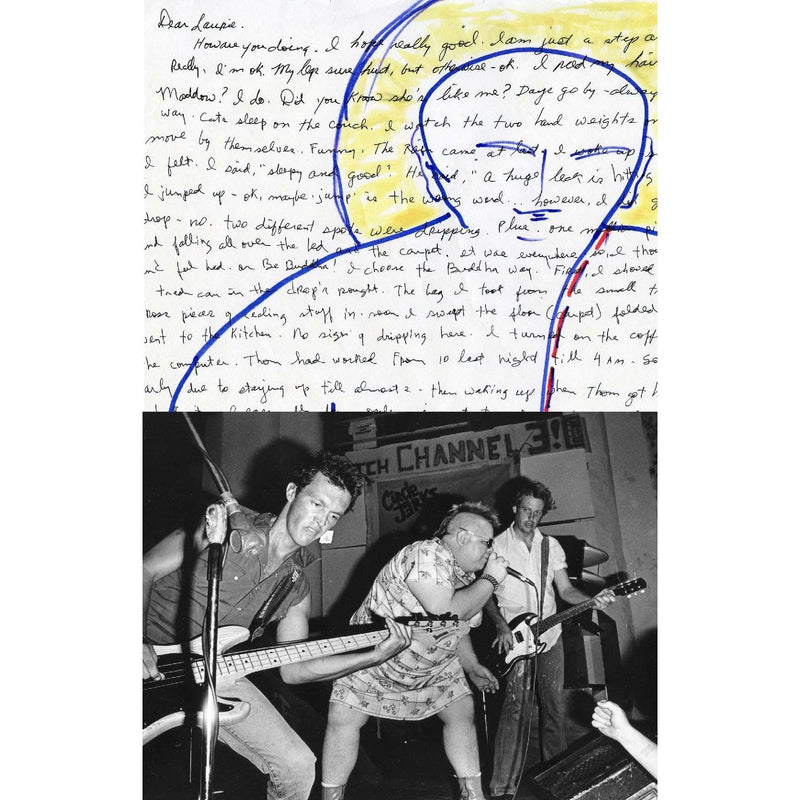 Dear Laurie.
How are you doing. I hope really good. I am just a step a
Really, I'm ok. My legs sure hurt, but otherwise - ok. I read my hair
Maddow? I do. Did you know she's like me? Days go by - always
way. Cats sleep on the couch. I watch the two hand weights
move by themselves. Funny. The Rain came at last. I woke up
I felt. I said, "sleepy and good". He said, "A huge leak is hitting
I jumped up - ok, maybe 'jump' is the wrong word... however, I
drop - no. two different spots were dripping. Plus one million
and falling all over the bed and the carpet. it was everywhere so I
feel bad. or Be Buddha! I choose the Buddha way. First, I
trash can in the drop's The bag I took from the small
pieces of ceiling stuff in. soon I swept the floor (carpet) folded
went to the kitchen. No sign of dripping here. I turned on the
the computer. Thom had worked from 10 last night till 4 AM. So
early due to staying up till almost 2 - then waking up when Thom got
CH CHANNEL 3!!
Circle
JERKS